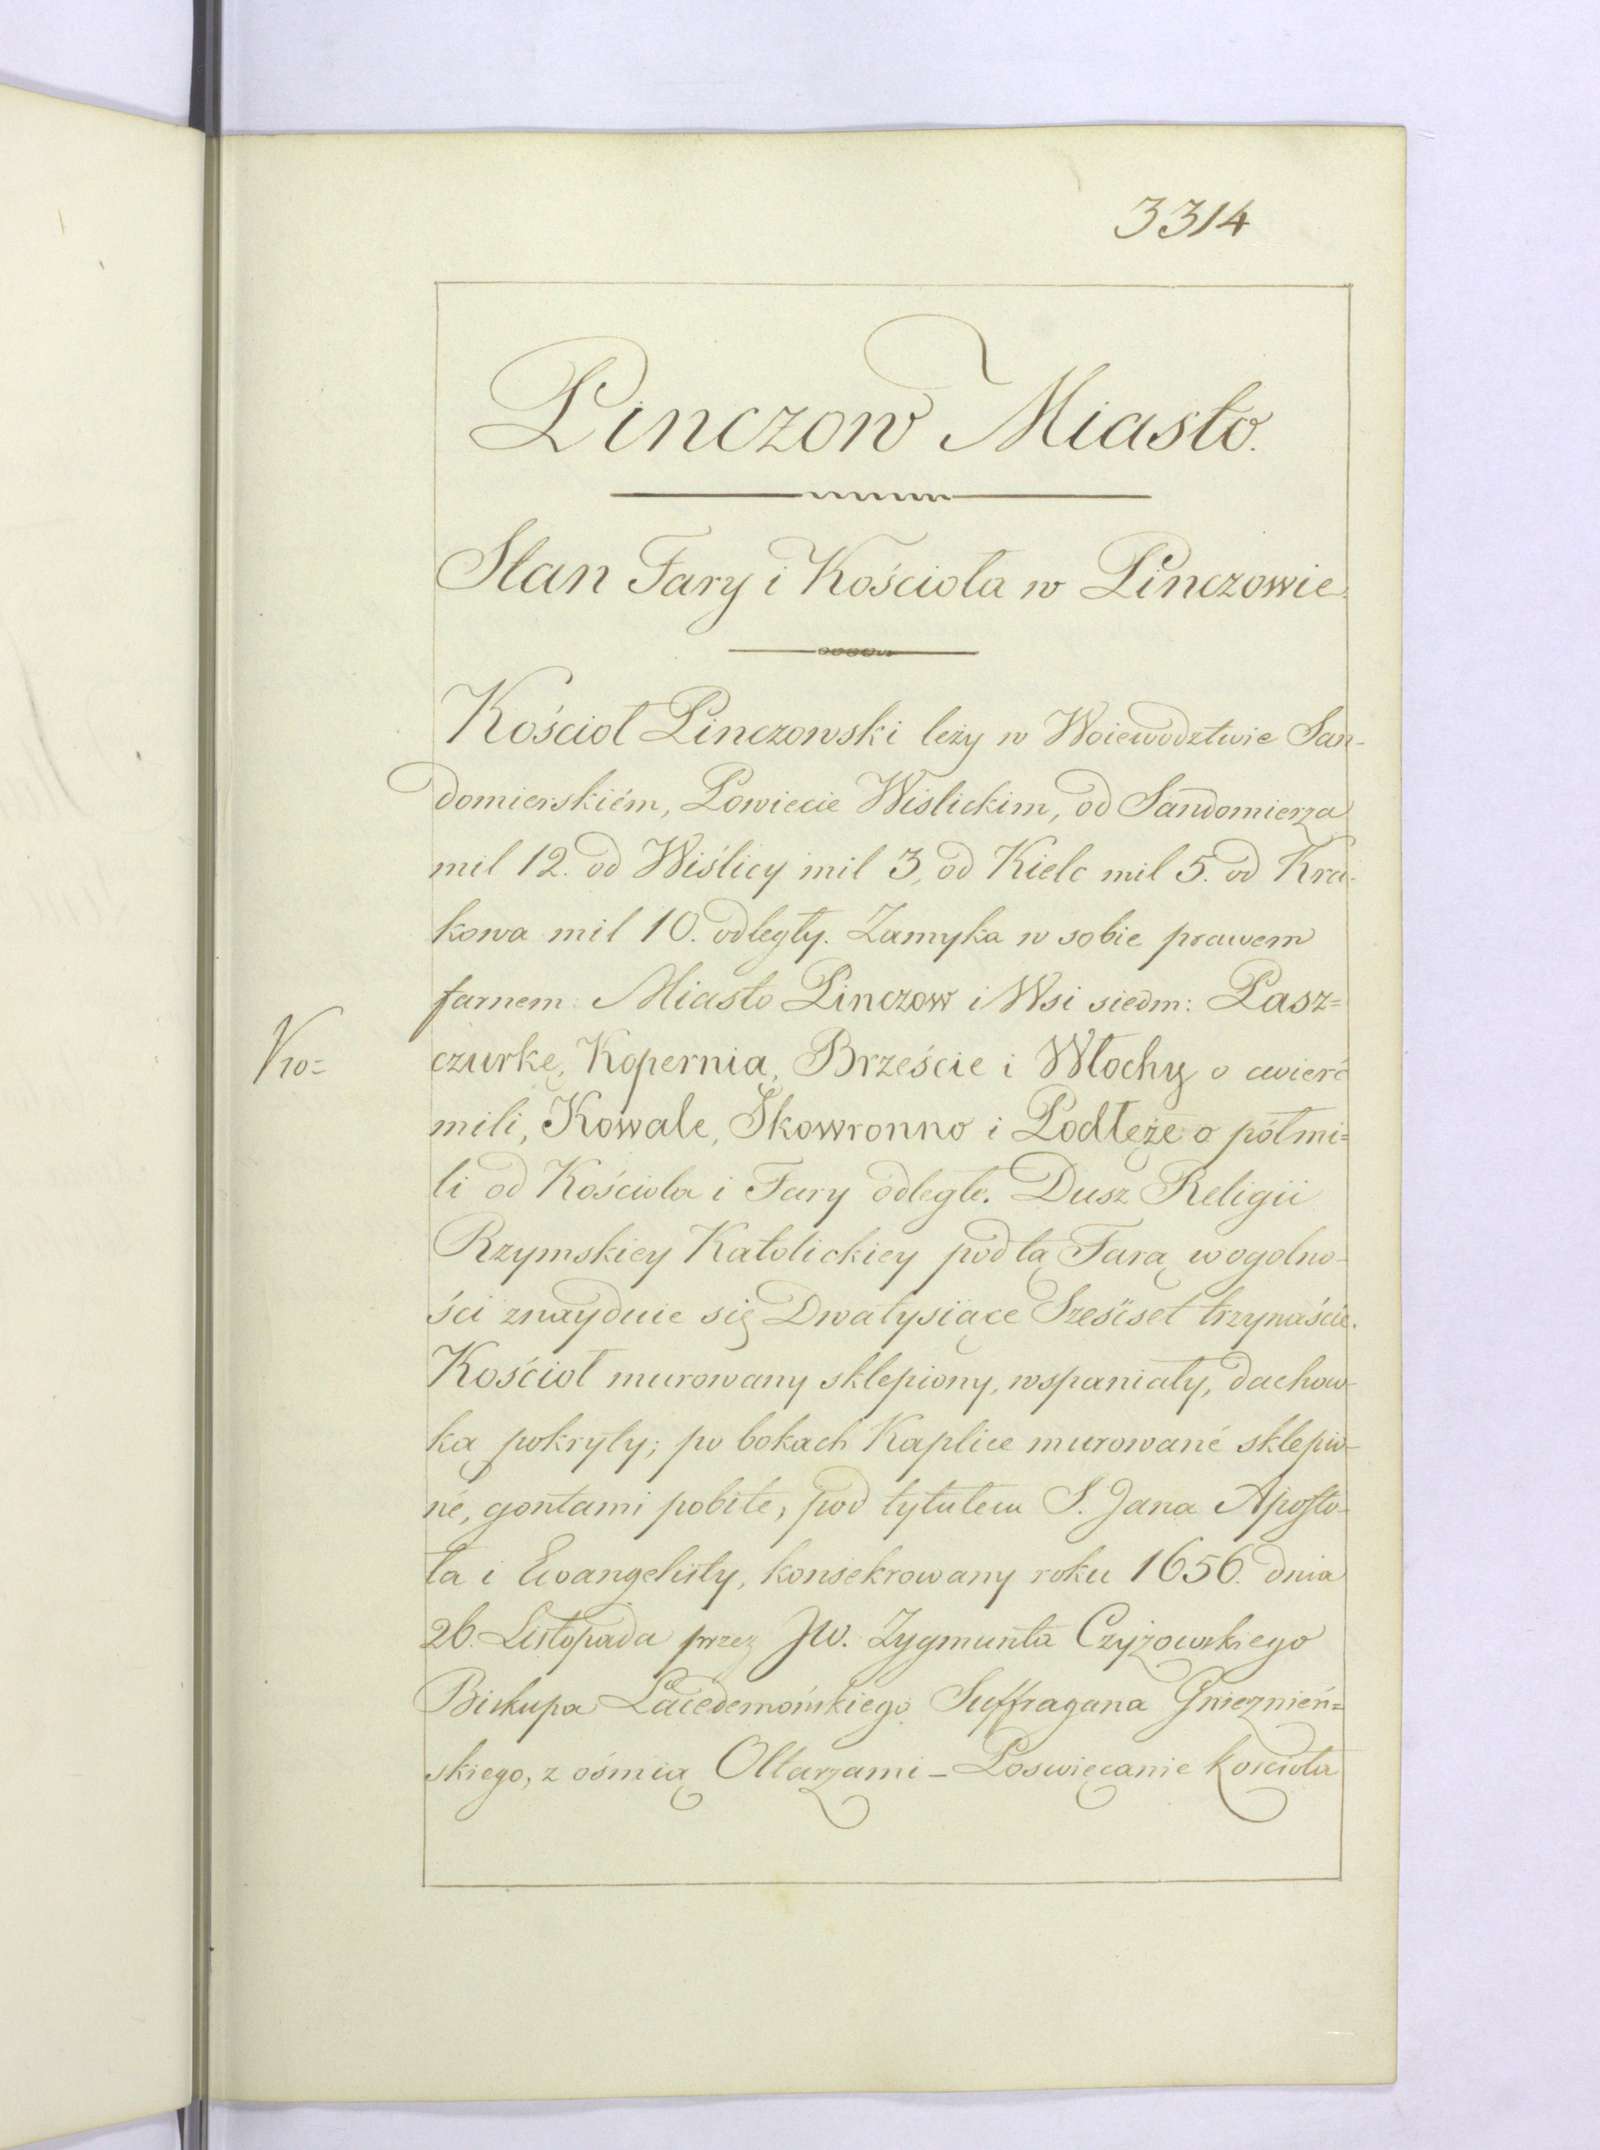 3314
Pinczow Miasto.
Stan Fary i Kościoła w Pinczowie.
Kościoł Pinczowski leży w Woiewodztwie San-
domierskiém, Powiecie Wislickim, od Sandomierza
mil 12. od Wiślicy mil 3, od Kielc mil 5. od Kra-
kowa mil 10. odległy. Zamyka w sobie prawem
farnem Miasto Pinczow i Wsi siedm: Pasz=
czurkę, Kopernią, Brzeście i Włochy o cwierć
mili, Kowale, Skowronno i Podłęże o półmi=
li od Kościoła i Fary odległe. Dusz Religii
Rzymskiey Katolickiey pod tą Farą w ogolno-
ści znayduie się Dwatysiące Sześćset trzynaście.
Kościoł murowany sklepiony, wspaniały, dachow-
ką pokryty; po bokach Kaplice murowané sklepio-
né, gontami pobite, pod tytułem S. Jana Aposto-
ła i Ewangelisty, konsekrowany roku 1656. dnia
26. Listopada przez JW. Zygmunta Czyżowskiego
Biskupa Lacedemońskiego Suffragana Gnieznień=
skiego, z ośmią Ołtarzami – Poswięcanie kościoła